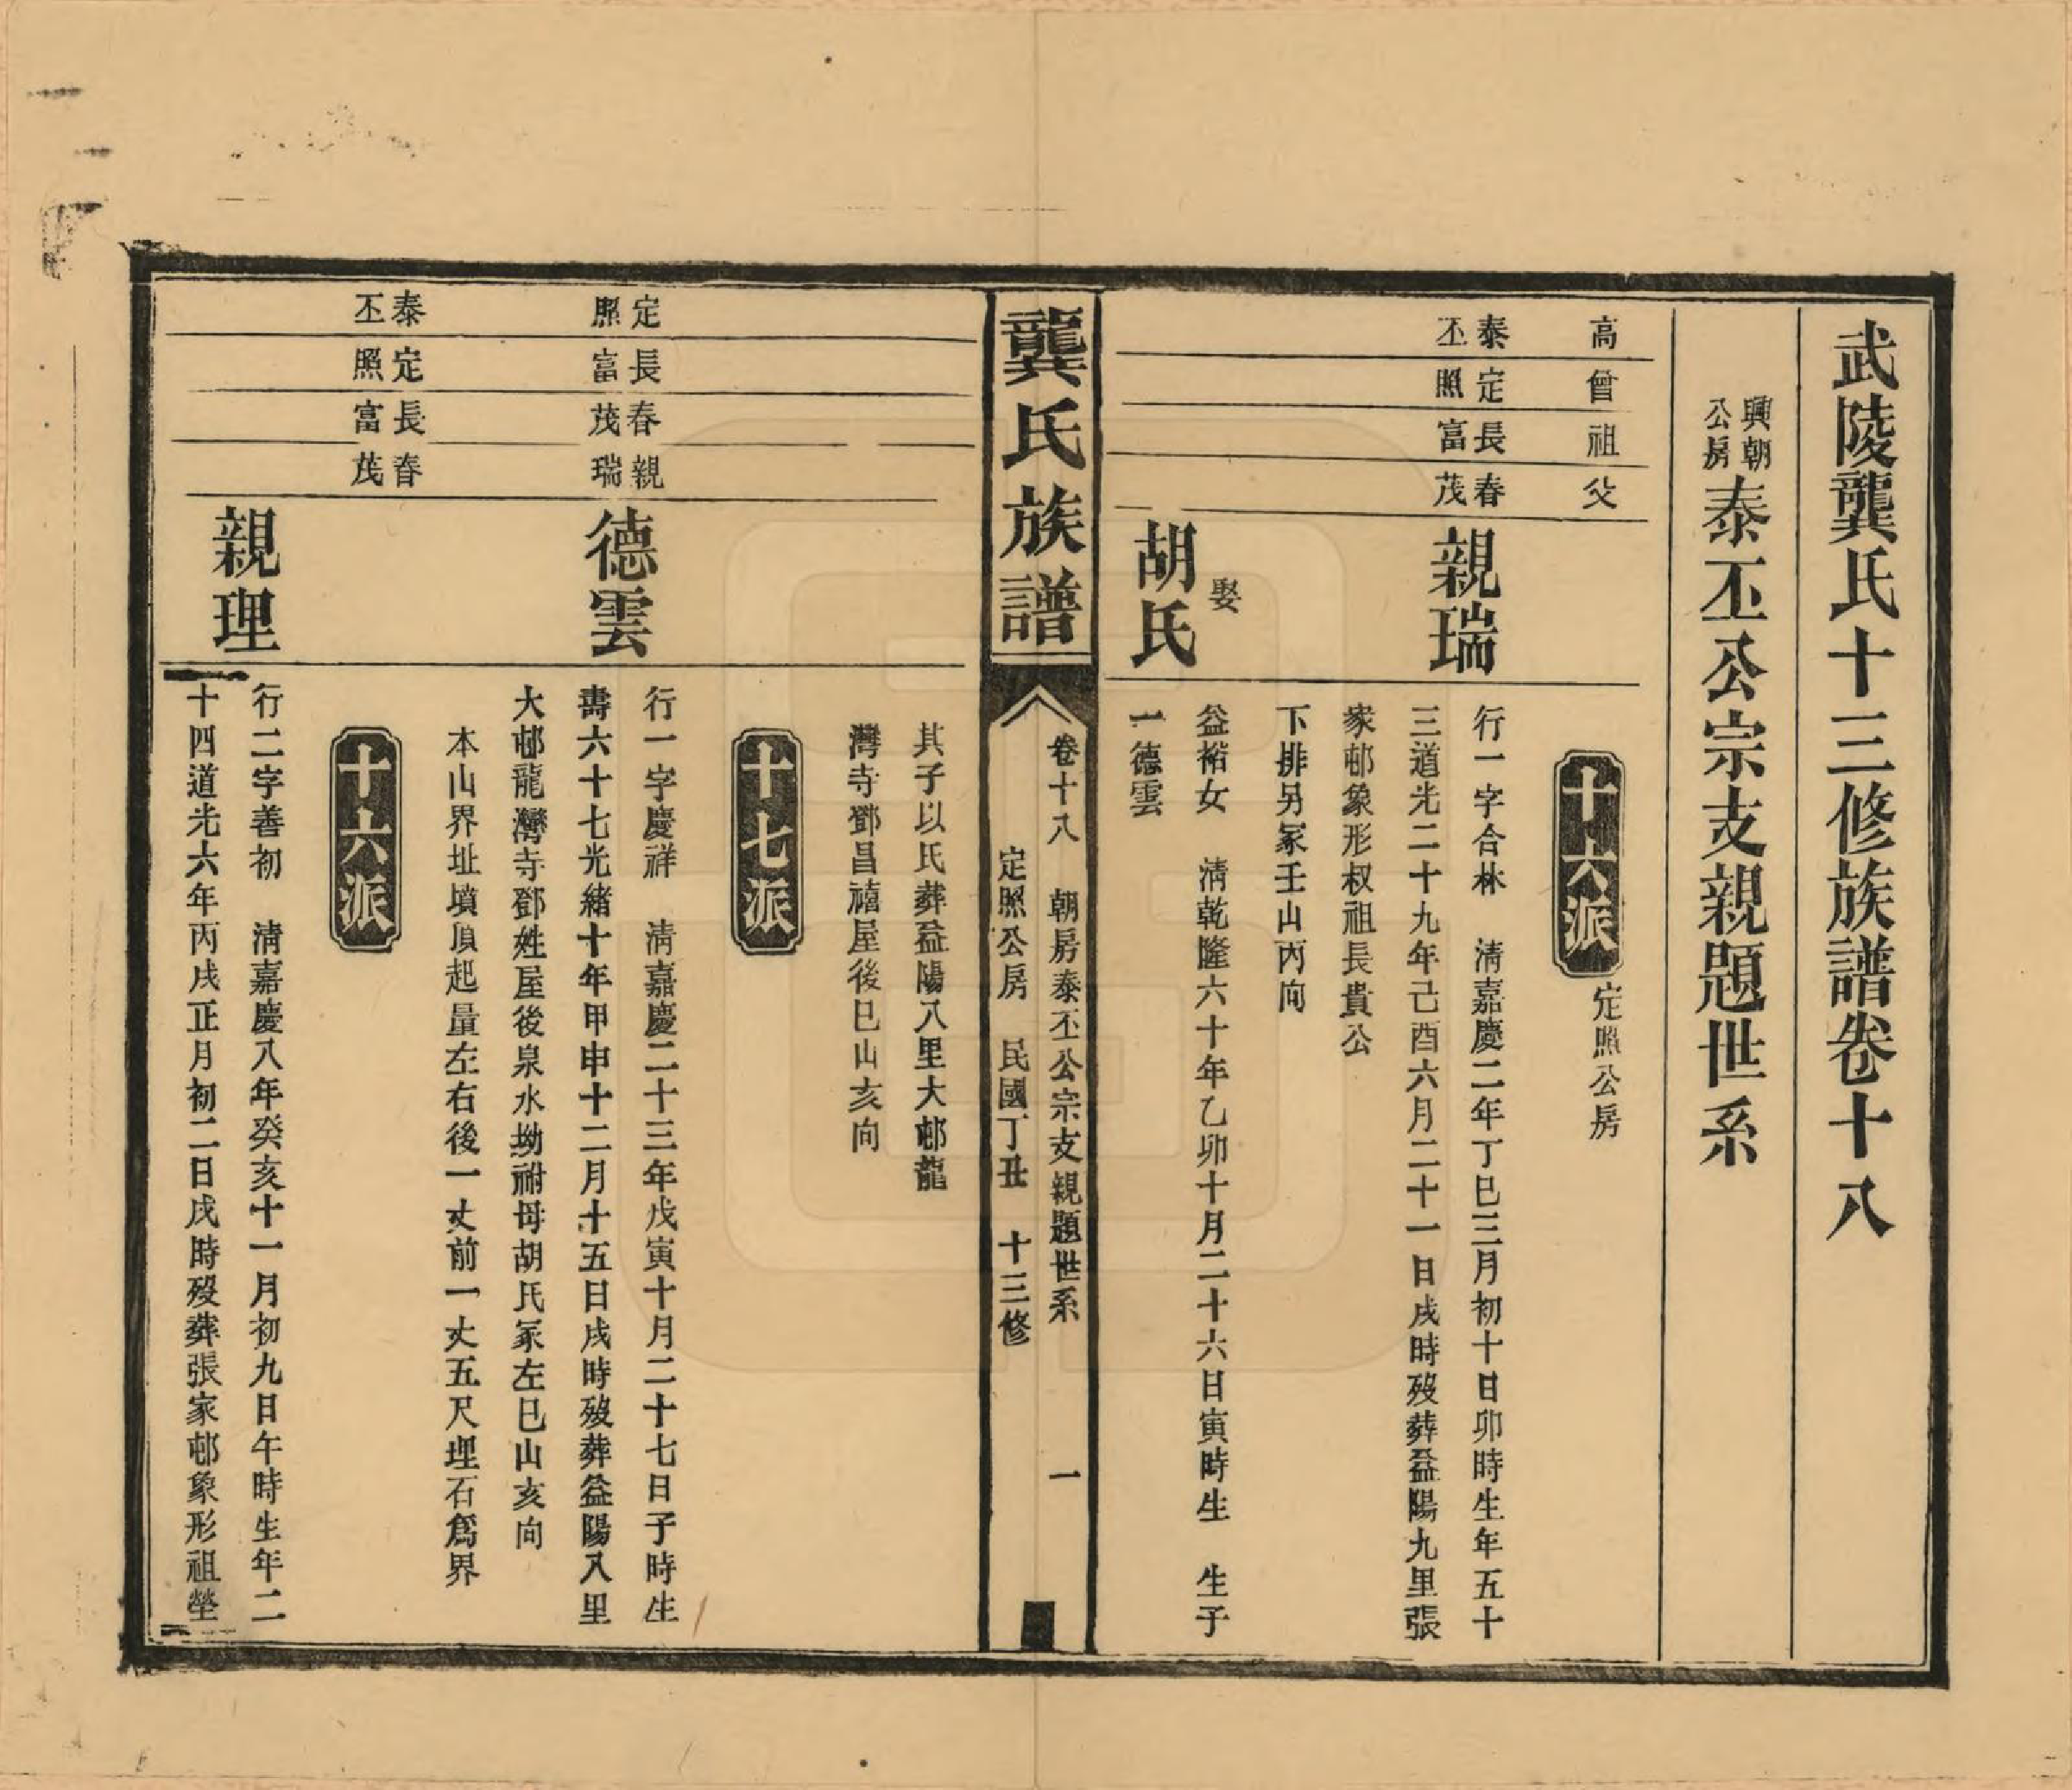 武陵龔氏十三修族譜卷十八
興朝
公房
泰丕公宗支親題世系
高
曾
祖
父
十六派
定照公房
泰丕
定照
長富
春茂
親瑞
行一字合林 清嘉慶二年丁巳三月初十日卯時生年五十
三道光二十九年己酉六月二十一日戌時歿葬益陽九里張
家邨象形叔祖長貴公
下排另冢壬山丙向
娶
胡氏
益裕女 清乾隆六十年乙卯十月二十六日寅時生 生子
一德雲
龔氏族譜
卷十八 朝房泰丕公宗支親題世系 一
定照公房 民國丁丑 十三修
其子以氏葬益陽八里大邨龍
灣寺鄧昌禧屋後巳山亥向
十七派
定照
長富
春茂
親瑞
德雲
行一字慶祥 清嘉慶二十三年戊寅十月二十七日子時生
壽六十七光緒十年甲申十二月十五日戌時歿葬益陽八里
大邨龍灣寺鄧姓屋後泉水坳祔母胡氏冢左巳山亥向
本山界址墳頂起量左右後一丈前一丈五尺埋石為界
十六派
泰丕
定照
長富
春茂
親理
行二字善初 清嘉慶八年癸亥十一月初九日午時生年二
十四道光六年丙戌正月初二日戌時歿葬張家邨象形祖塋